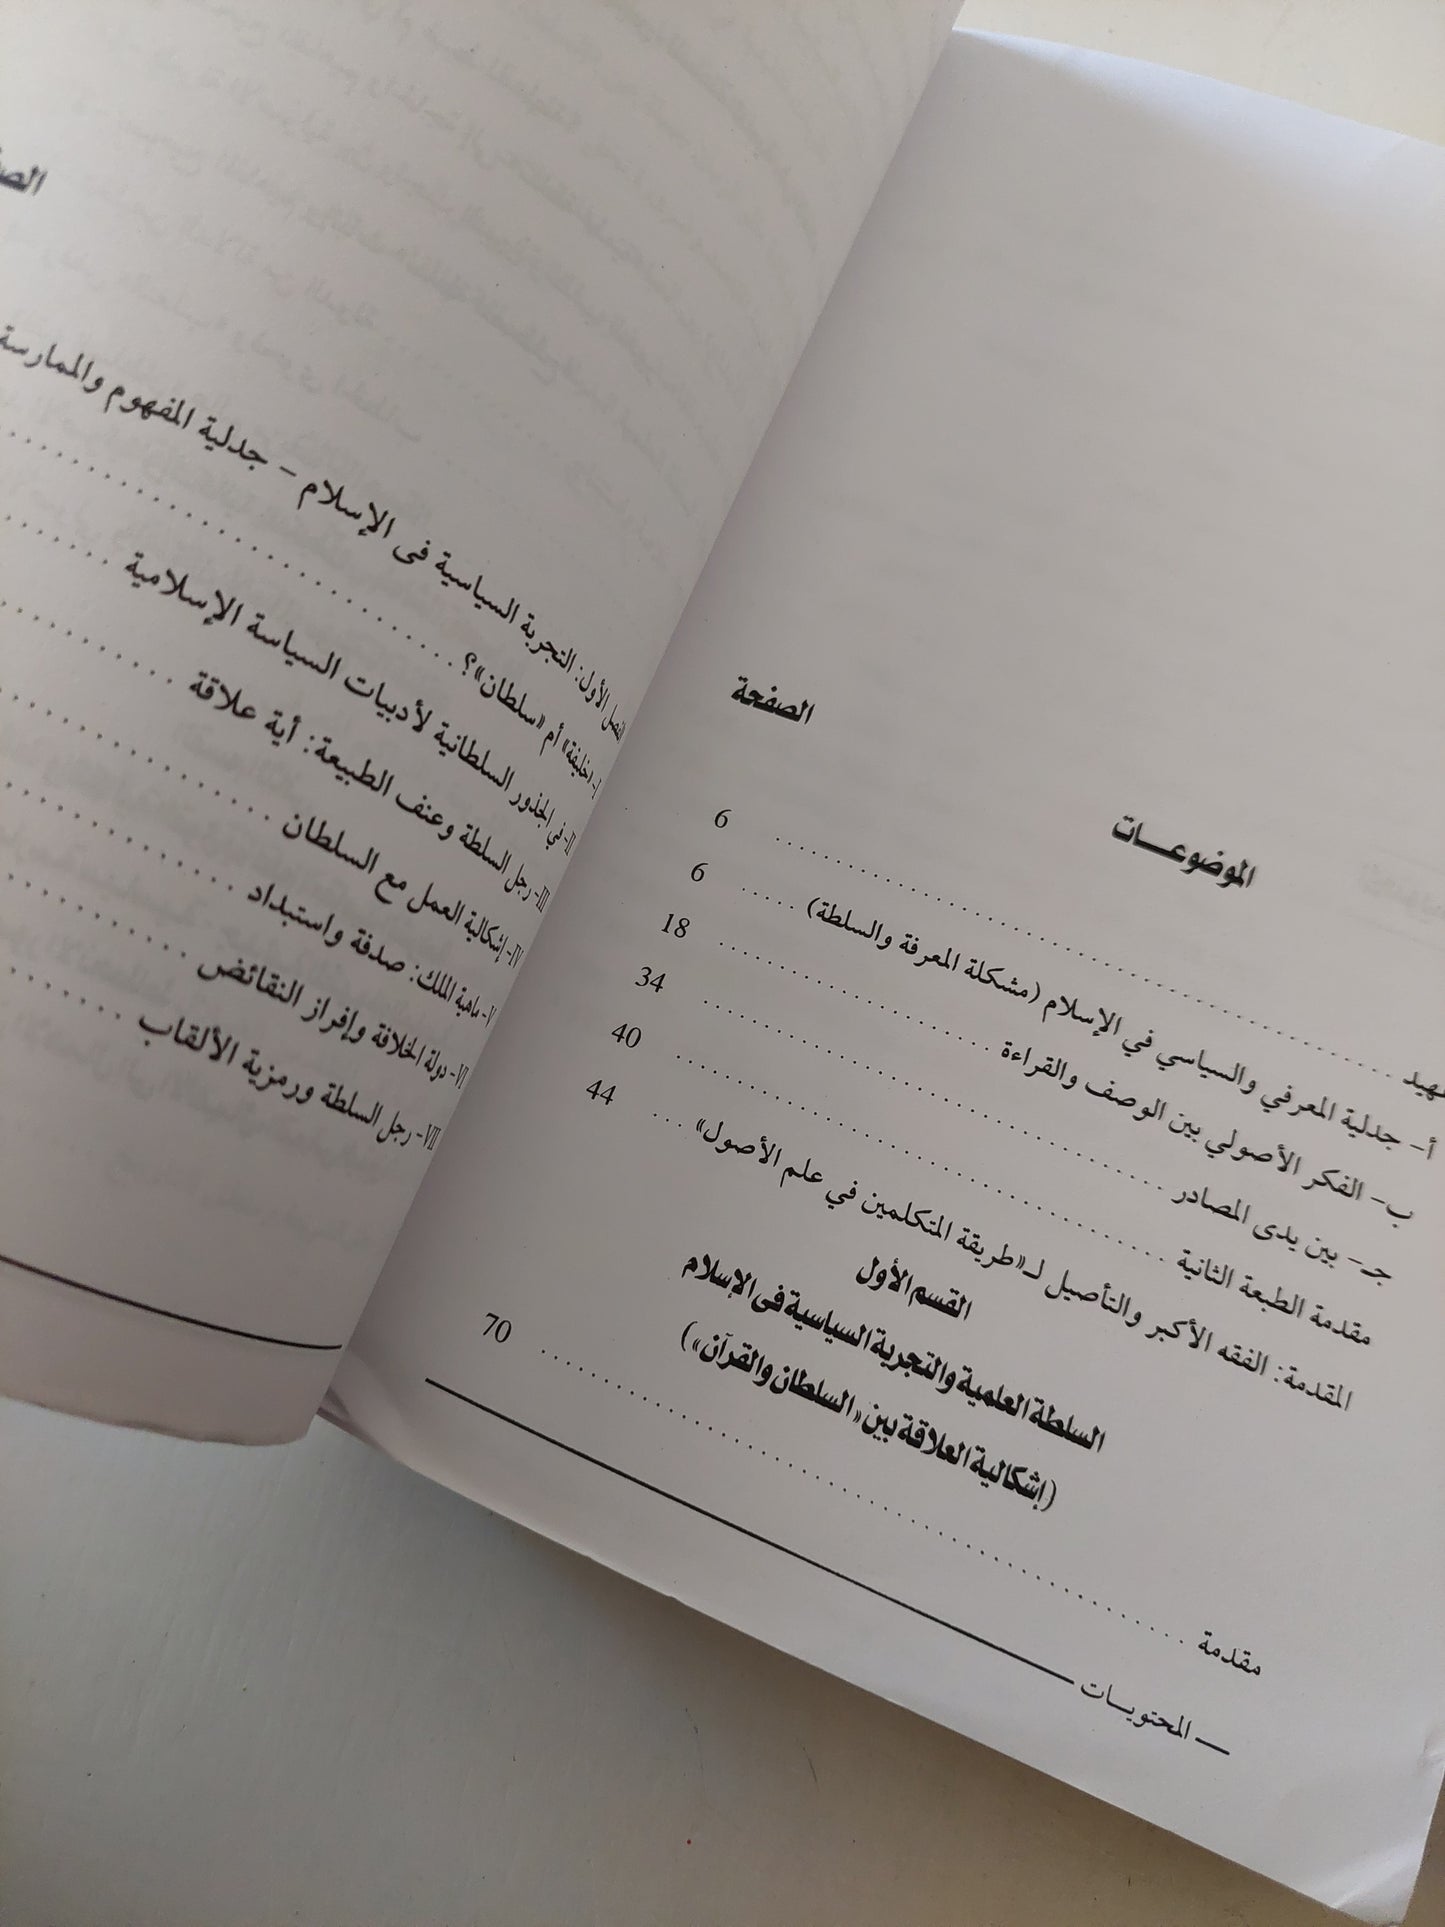 الموضوعـــات الصفحة
تمهيد ........ 6
أ- جدلية المعرفي والسياسي في الإسلام (مشكلة المعرفة والسلطة) ..... 6
ب- الفكر الأصولي بين الوصف والقراءة ........ 18
جـ- بين يدى المصادر ........ 34
مقدمة الطبعة الثانية ........ 40
المقدمة: الفقه الأكبر والتأصيل لـ«طريقة المتكلمين في علم الأصول» ... 44
القسم الأول
السلطة العلمية والتجربة السياسية فى الإسلام
(إشكالية العلاقة بين «السلطان والقرآن»)
مقدمة ........ 70
— المحتويـات —
الفصل الأول: التجربة السياسية فى الإسلام – جدلية المفهوم والممارسة
I- «خليفة» أم «سلطان»؟ ........
II- في الجذور السلطانية لأدبيات السياسة الإسلامية ........
III- رجل السلطة وعنف الطبيعة: أية علاقة ........
IV- إشكالية العمل مع السلطان ........
V- ماهية الملك: صدفة واستبداد ........
VI- دولة الخلافة وإفراز النقائض ........
VII- رجل السلطة ورمزية الألقاب ........